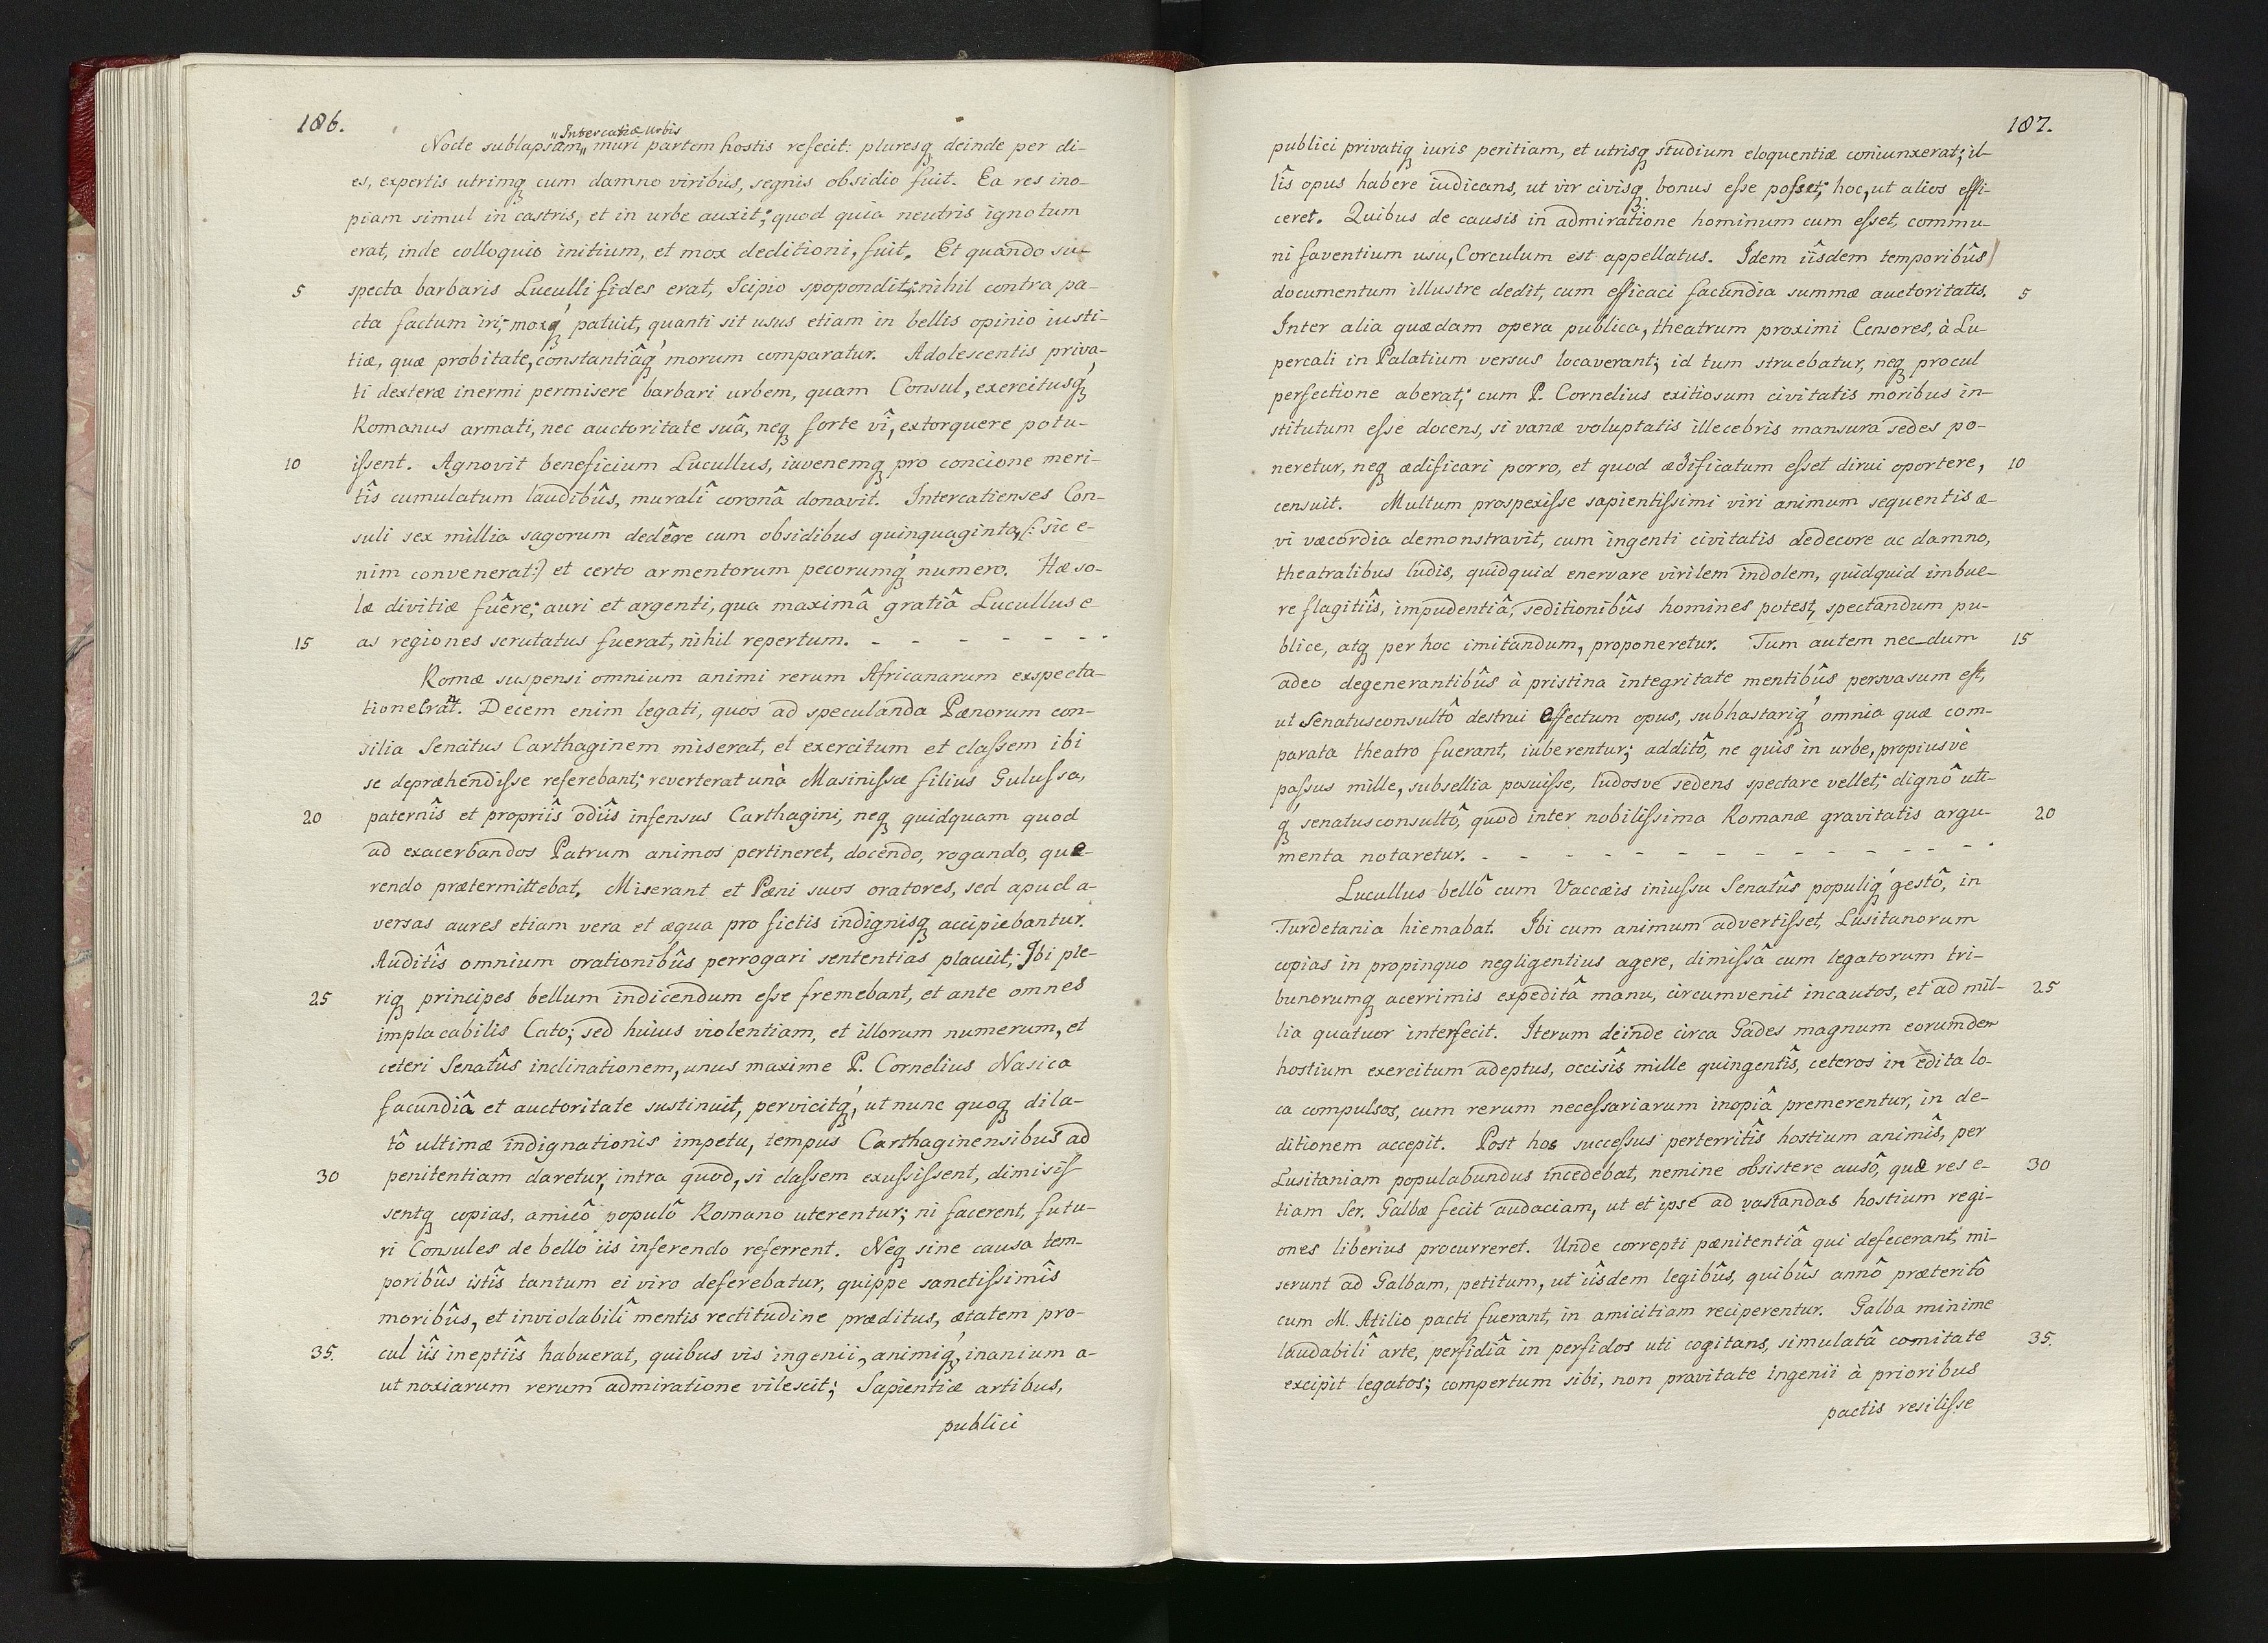 186.
"Intercatiæ urbis
Nocte sublapsam„ muri partem hostis refecit: pluresqꝫ deinde per di-
es, expertis utrimqꝫ cum damno viribus, segnis obsidio fuit. Ea res ino-
piam simul in castris, et in urbe auxit; quod quia neutris ignotum
erat, inde colloquio initium, et mox deditioni, fuit. Et quando su-
5 specta barbaris Luculli fides erat, Scipio spopondit; nihil contra pa-
cta factum iri; moxqꝫ́ patuit, quanti sit usus etiam in bellis opinio iusti-
tiæ, quæ probitate, constantiâqꝫ́ morum comparatur. Adolescentis priva-
ti dexteræ inermi permisere barbari urbem, quam Consul, exercitusqꝫ́
Romanus armati, nec auctoritate suâ, neqꝫ forte vî, extorquere potu-
10 iſsent. Agnovit beneficium Lucullus, iuvenemqꝫ pro concione meri-
tîs cumulatum laudibûs, muralî coronâ donavit. Intercatienses Con-
suli sex millia sagorum dedêre cum obsidibus quinquaginta, (: sic e-
nim convenerat:) et certo armentorum pecorumqꝫ́ numero. Hæ so-
læ divitiæ fuêre; auri et argenti, qua maximâ gratiâ Lucullus e-
15 as regiones scrutatus fuerat, nihil repertum. - - - - - - -
Romæ suspensi omnium animi rerum Africanarum exspecta-
tione erant. Decem enim legati, quos ad speculanda Pænorum con-
silia Senatus Carthaginem miserat, et exercitum et claſsem ibi
se depræhendiſse referebant; reverterat unà Masiniſsæ filius Guluſsa,
20 paternîs et propriîs odiîs infensus Carthagini, neqꝫ quidquam quod
ad exacerbandos Patrum animos pertineret, docendo, rogando, que-
rendo prætermittebat. Miserant et Pæni suos oratores, sed apud a-
versas aures etiam vera et æqua pro fictis indignisqꝫ accipiebantur.
Auditîs omnium orationibûs perrogari sententias placuit; Ibi ple-
25 riqꝫ principes bellum indicendum eſse fremebant, et ante omnes
implacabilis Cato; sed huius violentiam, et illorum numerum, et
ceteri Senatûs inclinationem, unus maxime P. Cornelius Nasica
facundiâ et auctoritate sustinuit, pervicitqꝫ́, ut nunc quoqꝫ dila-
tô ultimæ indignationis impetu, tempus Carthaginensibus ad
30 penitentiam daretur, intra quod, si claſsem exuſsiſsent, dimisiſ-
sentqꝫ copias, amicô populô Romano uterentur; ni facerent, futu-
ri Consules de bello iis inferendo referrent. Neqꝫ sine causa tem-
poribûs istîs tantum ei viro deferebatur, quippe sanctiſsimîs
moribûs, et inviolabilî mentis rectitudine præditus, ætatem pro-
35. cul iîs ineptiîs habuerat, quibus vis ingenii, animiqꝫ́, inanium a-
ut noxiarum rerum admiratione vilescit; Sapientiæ artibus,
publici
187.
publici privatiqꝫ iuris peritiam, et utrisqꝫ studium eloquentiæ coniunxerat; il-
lîs opus habere iudicans, ut vir civisqꝫ bonus eſse poſset; hoc, ut alios effi-
ceret. Quibus de causis in admiratione hominum cum eſset, commu-
ni faventium usu, Corculum est appellatus. Idem iîsdem temporibûs)
documentum illustre dedit, cum efficaci facundia summæ auctoritatis. 5
Inter alia quædam opera publica, theatrum proximi Censores, à Lu-
percali in Palatium versus locaverant; id tum struebatur, neqꝫ procul
perfectione aberat; cum P. Cornelius exitiosum civitatis moribus in-
stitutum eſse docens, si vanæ voluptatis illecebris mansura sedes po-
neretur, neqꝫ ædificari porro, et quod ædificatum eſset dirui oportere, 10
censuit. Multum prospexiſse sapientiſsimi viri animum sequentis æ-
vi væcordia demonstravit, cum ingenti civitatis dedecore ac damno,
theatralibus ludis, quidquid enervare virilem indolem, quidquid imbue-
re flagitiîs, impudentiâ, seditionibûs homines potest, spectandum pu-
blice, atqꝫ per hoc imitandum, proponeretur. Tum autem nec dum 15
adeo degenerantibûs à pristina integritate mentibûs persvasum est,
ut Senatusconsultô destrui effectum opus, subhastariqꝫ́ omnia quæ com-
parata theatro fuerant, iuberentur; additô, ne quis in urbe, propiusvè
paſsus mille, subsellia posuiſse, ludosve sedens spectare vellet; dignô uti-
qꝫ́ senatusconsultô, quod inter nobiliſsima Romanæ gravitatis argu- 20
menta notaretur. - - - - - - - - - - - - -
Lucullus bellô cum Vaccæis iniuſsu Senatûs populiqꝫ́ gestô, in
Turdetania hiemabat. Ibi cum animum advertiſset, Lusitanorum
copias in propinquo negligentius agere, dimiſsâ cum legatorum tri-
bunorumqꝫ acerrimis expeditâ manu, circumvenit incautos, et ad mil- 25
lia quatuor interfecit. Iterum deinde circa Gades magnum eorumdem
hostium exercitum adeptus, occisîs mille quingentîs, ceteros in edita lo-
ca compulsos, cum rerum neceſsariarum inopiâ premerentur, in de-
ditionem accepit. Post hos succeſsus perterritîs hostium animîs, per
Lusitaniam populabundus incedebat, nemine obsistere ausô, quæ res e- 30
tiam Ser. Galbæ fecit audaciam, ut et ipse ad vastandas hostium regi-
ones liberius procurreret. Unde correpti pænitentiâ qui defecerant, mi-
serunt ad Galbam, petitum, ut iîsdem legibûs, quibûs annô præteritô
cum M. Atilio pacti fuerant, in amicitiam reciperentur. Galba minime
laudabilî arte, perfidiâ in perfidos uti cogitans, simulatâ comitate 35.
excipit legatos; compertum sibi, non pravitate ingenii à prioribus
pactis resiliſse